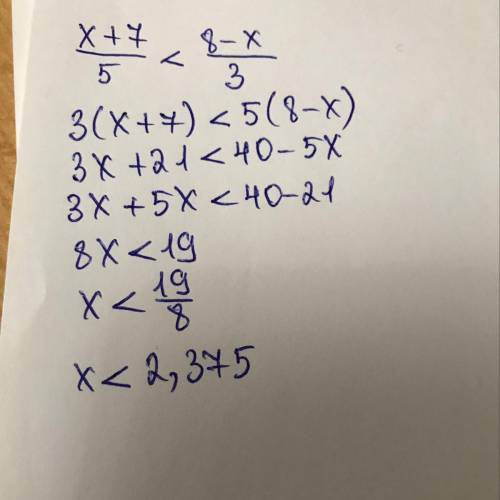 x+7/5 < 8-x/3
3(x+7) < 5(8-x)
3x+21 < 40-5x
3x+5x < 40-21
8x < 19
x < 19/8
x < 2,375